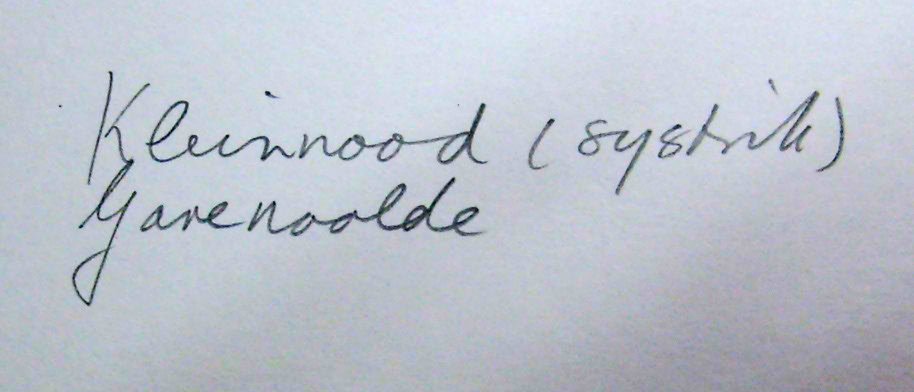 Kleinnood (systrik)
Yarenoolde